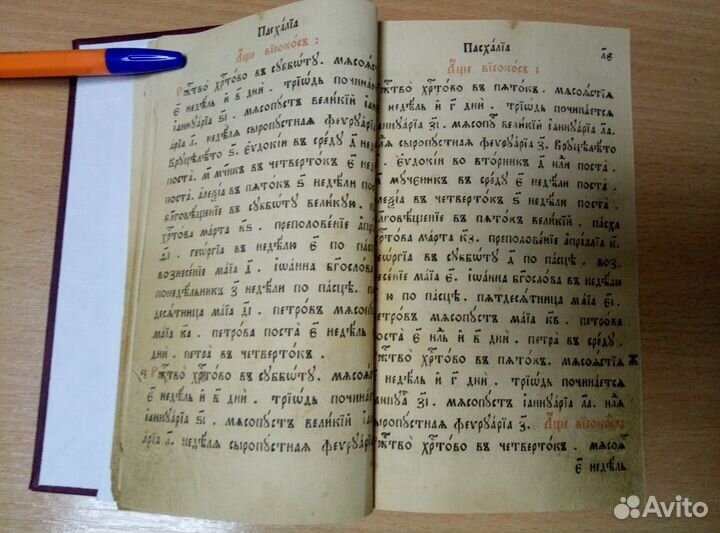 Пасхалїа
Аще високосъ :
Рж҃тво хр҃тово въ сꙋббѡтꙋ . мѧсоѧ҃
є҃ недѣль и в҃ дни . трїѡдь почина
їаннꙋарїа ѕ҃і . мѧсопꙋстъ великїй їан
арїа л҃ . недѣлѧ сыропꙋстнаѧ феѵрꙋарїа
врꙋцѣлѣто ѕ҃ . єѵдокїи въ средꙋ д҃ нед
поста . м҃ мч҃никъ въ четвертокъ є҃ не
поста . алеѯїа въ пѧтокъ ѕ҃ недѣли пос
благовѣщенїе въ сꙋббѡтꙋ великꙋю . п
хр҃това марта к҃ѕ . преполовенїе апр
д҃і . геѡргїа въ недѣлю є҃ по пасцѣ
вознесенїе маїа д҃ . їѡанна бг҃ослова
понедѣльникъ з҃ недѣли по пасцѣ . п
десѧтница маїа д҃і . петровъ мѧсопꙋстъ
маїа к҃а . петрова поста є҃ недѣль
дни . петра въ четвертокъ .
Рж҃тво хр҃тово въ сꙋббѡтꙋ . мѧсоѧ
є҃ недѣль и в҃ дни . трїѡдь починае
їаннꙋарїа ѕ҃і . мѧсопꙋстъ великїй їаннꙋ
арїа л҃ . недѣлѧ сыропꙋстнаѧ феѵрꙋарїа
Пасхалїа
Аще високосъ :
жтво хр҃тово въ пѧтокъ . мѧсоѧстїѧ
є҃ недѣль и г҃ дни . трїѡдь починается
їаннꙋарїа з҃і . мѧсопꙋстъ великїй їаннꙋарїа л҃а .
сыропꙋстнаѧ феѵрꙋарїа з҃ . врꙋцѣлѣто
є҃ . єѵдокїи во вторникъ д҃ поста .
мꙋченикъ въ средꙋ є҃ недѣли поста .
алеѯїа въ четвертокъ ѕ҃ недѣли поста .
благовѣщенїе въ пѧтокъ великїй . пасха
хр҃това марта к҃з . преполовенїе апрїлїа к҃ .
геѡргїа въ сꙋббѡтꙋ д҃ по пасцѣ . воз
несенїе маїа є҃ . їѡанна бг҃ослова въ недѣлю
по пасцѣ . пѧтдесѧтница маїа є҃і .
петровъ мѧсопꙋстъ маїа к҃в . петрова
поста є҃ и в҃ дни . петра въ средꙋ .
жтво хр҃тово въ пѧтокъ . мѧсоѧстїѧ
є҃ недѣль и г҃ дни . трїѡдь починается
з҃і . мѧсопꙋстъ їаннꙋарїа л҃а .
сыропꙋстнаѧ феѵрꙋарїа з҃ . Аще високосъ :
жтво хр҃тово въ четвертокъ . мѧсоѧ
є҃ недѣль
Avito